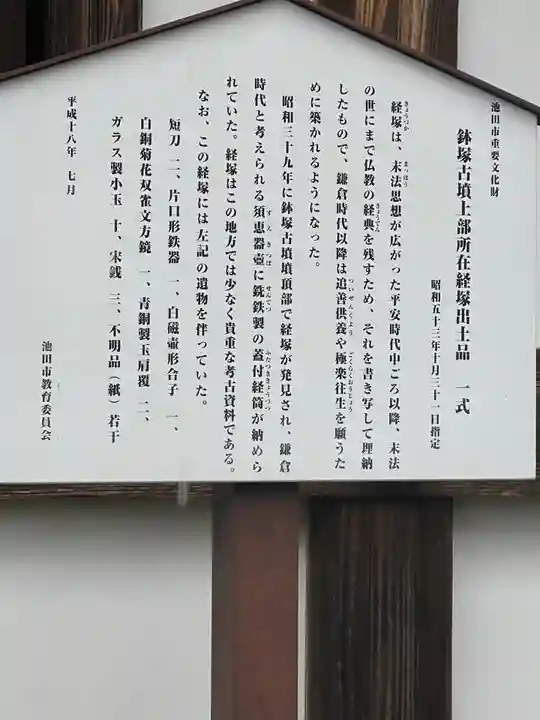 池田市重要文化財
鉢塚古墳上部所在経塚出土品　一式
昭和五十三年十月三十一日指定
経塚は、末法思想が広がった平安時代中ごろ以降、末法
きょうづか
まっぽう
の世にまで仏教の経典を残すため、それを書き写して埋納
きょうてん
したもので、鎌倉時代以降は追善供養や極楽往生を願うた
ついぜんくよう
ごくらくおうじょう
めに築かれるようになった。
昭和三十九年に鉢塚古墳墳頂部で経塚が発見され、鎌倉
時代と考えられる須恵器壺に銑鉄製の蓋付経筒が納めら
すえきつぼ
せんてつ
ふたつききょうづつ
れていた。経塚はこの地方では少なく貴重な考古資料である。
なお、この経塚には左記の遺物を伴っていた。
短刀　二、片口形鉄器　一、白磁壷形合子　一、
白銅菊花双雀文方鏡　一、青銅製玉肩覆　二、
ガラス製小玉　十、宋銭　三、不明品（紙）若干
平成十八年　七月
池田市教育委員会